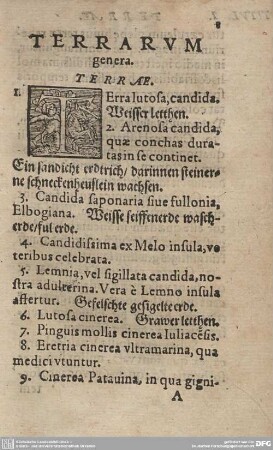 8
TERRARVM
genera.
TERRÆ.
1. TErra lutosa, candida.
Weisser letthen.
2. Arenosa candida,
quæ conchas dura-
tas in se continet.
Ein sandicht erdtrich/ darinnen steiner-
ne schneckenheuslein wachsen.
3. Candida saponaria siue fullonia,
Elbogiana. Weisse seiffenerde wasch-
erde/ful erde.
4. Candidissima ex Melo insula, ve
teribus celebrata.
5. Lemnia, vel sigillata candida, no-
stra adulterina. Vera è Lemno insula
affertur. Gefelschte gesigelte erde.
6. Lutosa cinerea. Grawer letthen.
7. Pinguis mollis cinerea Iuliacēsis.
8. Eretria cinerea vltramarina, qua
medici vtuntur.
9. Cinerea Patauina, in qua gigni-
A